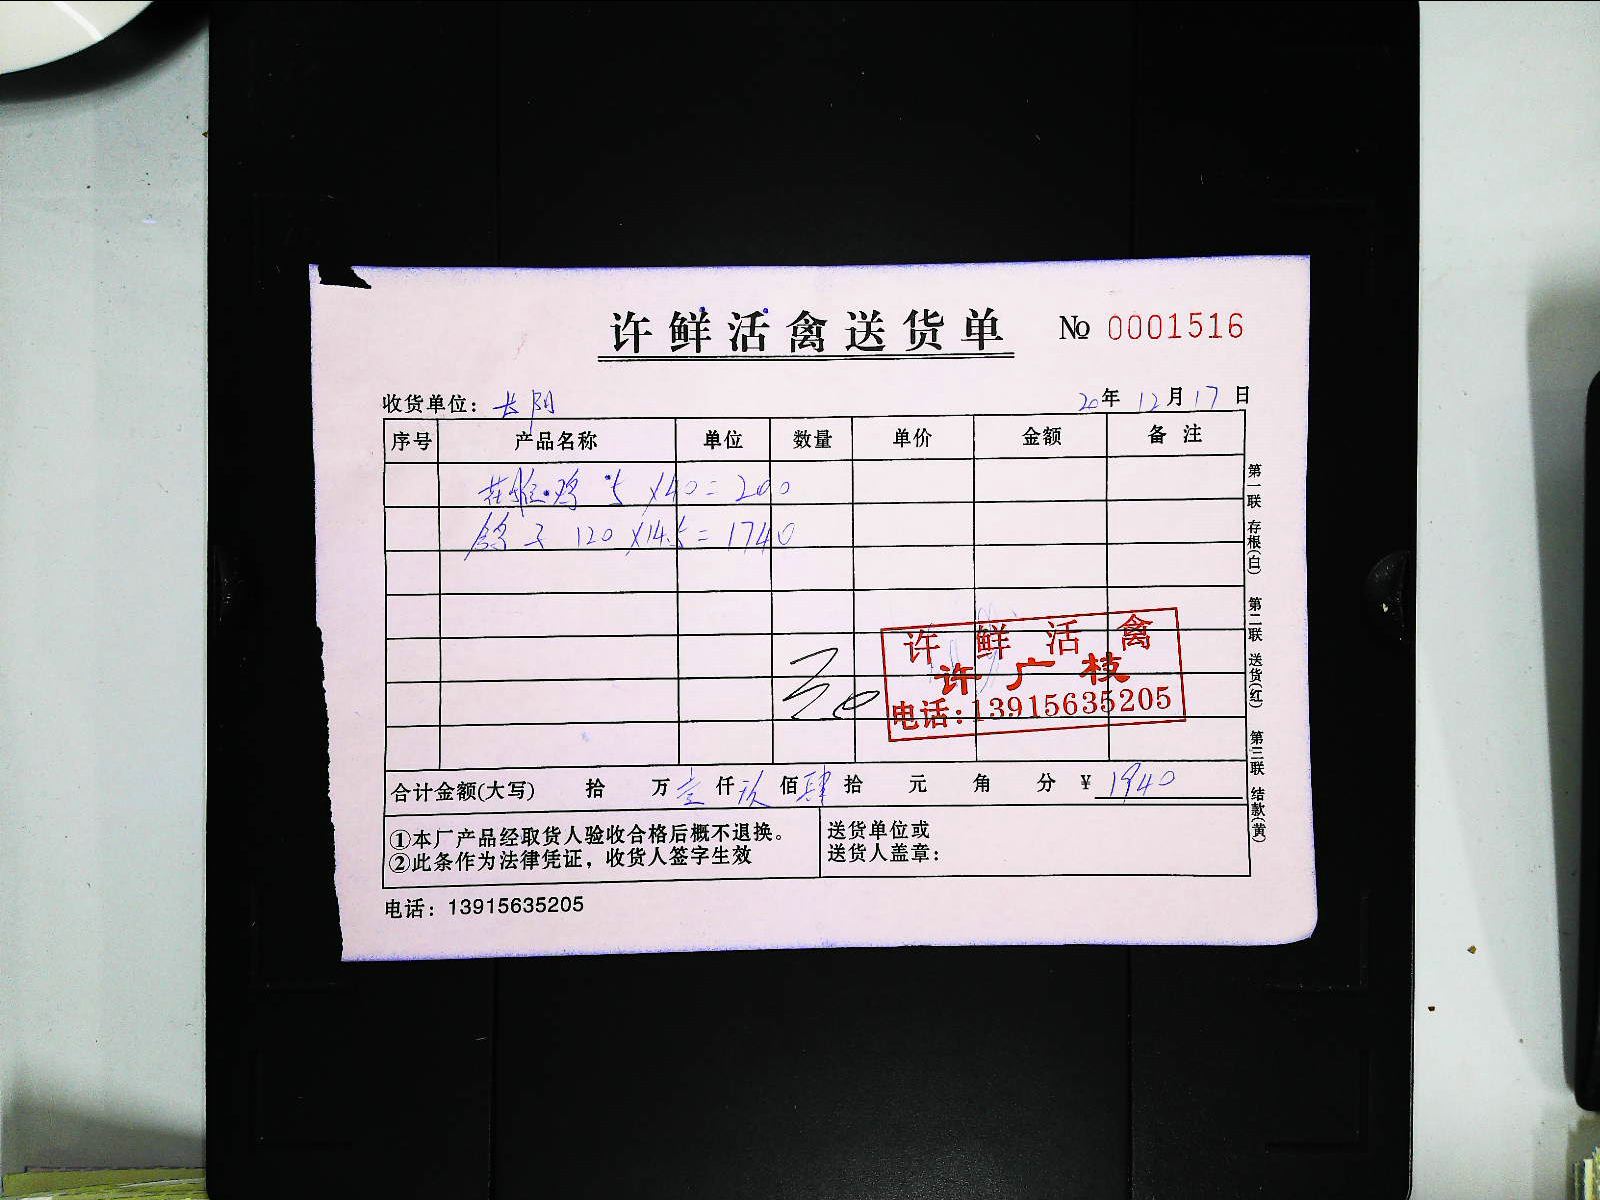 许鲜活禽送货单 № 0001516
收货单位：长阳 20年 12月 17日
序号 产品名称 单位 数量 单价 金额 备注
鸡 5 ×40=200
鸽子 120 ×14.5=1740
许鲜活禽
许广枝
电话:13915635205
合计金额(大写) 拾 万 壹 仟 玖 佰 肆 拾 元 角 分 ¥ 1940
①本厂产品经取货人验收合格后概不退换。
②此条作为法律凭证，收货人签字生效
送货单位或
送货人盖章：
电话：13915635205
第一联 存根(白)
第二联 送货(红)
第三联 结款(黄)